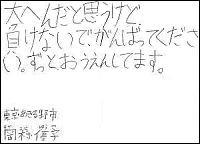 大へんだと思うけど、
負けないで、がんばってくださ
い。ずっとおうえんしてます。
東京あきる野市